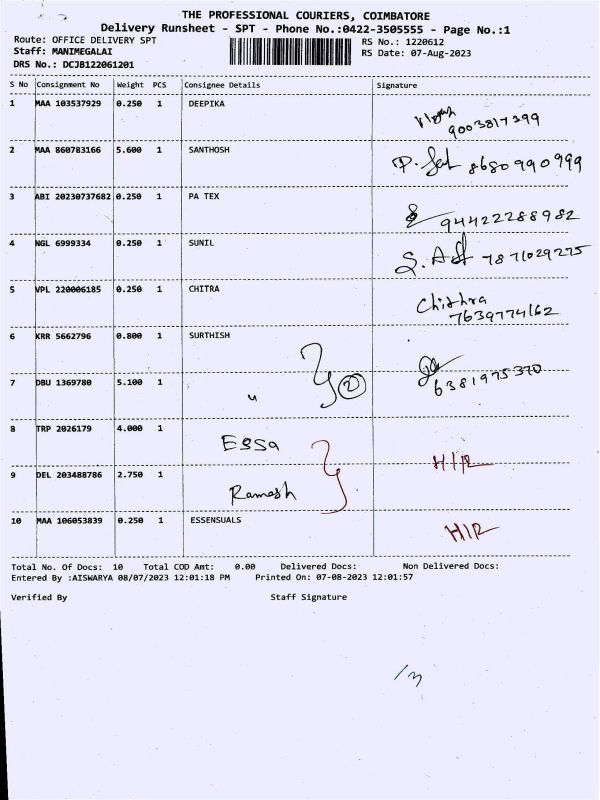 THE PROFESSIONAL COURIERS, COIMBATORE
Delivery Runsheet - SPT - Phone No.:0422-3505555 - Page No.:1
Route: OFFICE DELIVERY SPT RS No.: 1220612
Staff: MANIMEGALAI RS Date: 07-Aug-2023
DRS No.: DCJB122061201
S No Consignment No Weight PCS Consignee Details Signature
1 MAA 103537929 0.250 1 DEEPIKA
9003817399
2 MAA 860783166 5.600 1 SANTHOSH
8680990999
3 ABI 20230737682 0.250 1 PA TEX
94422288982
4 NGL 6999334 0.250 1 SUNIL
7871029275
5 VPL 220006185 0.250 1 CHITRA Chithra
7639774162
6 KRR 5662796 0.800 1 SURTHISH
7 DBU 1369780 5.100 1 " 2 6381975370
8 TRP 2026179 4.000 1 Essa H/R
9 DEL 203488786 2.750 1 Ramesh
10 MAA 106053839 0.250 1 ESSENSUALS H/R
Total No. Of Docs: 10 Total COD Amt: 0.00 Delivered Docs: Non Delivered Docs:
Entered By :AISWARYA 08/07/2023 12:01:18 PM Printed On: 07-08-2023 12:01:57
Verified By Staff Signature